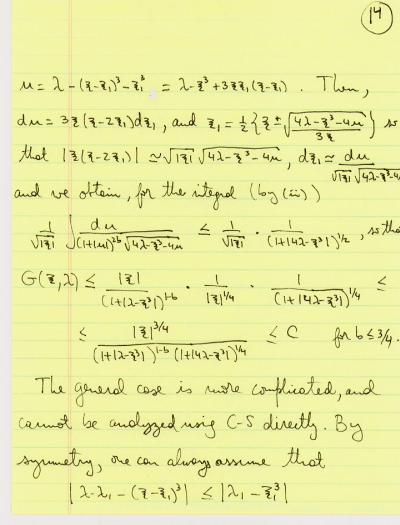 14
u = λ - (ξ-ξ₁)³ - ξ₁³ = λ - ξ³ + 3ξξ₁(ξ-ξ₁). Then,
du = 3ξ(ξ-2ξ₁)dξ₁, and ξ₁ = ½{ξ ± √((4λ-ξ³-4u)/(3ξ))} so
that |ξ(ξ-2ξ₁)| ≃ √|ξ| √(4λ-ξ³-4u), dξ₁ ≃ du/(√|ξ| √(4λ-ξ³-4u
and we obtain, for the integral (by (iii))
1/√|ξ| ∫ du/((1+|u|)^{2b} √(4λ-ξ³-4u)) ≤ 1/√|ξ| · 1/(1+|4λ-ξ³|)^{1/2}, so tha
G(ξ,λ) ≤ |ξ|/(1+|λ-ξ³|)^{1-b} · 1/|ξ|^{1/4} · 1/(1+|4λ-ξ³|)^{1/4} ≤
≤ |ξ|^{3/4}/((1+|λ-ξ³|)^{1-b} (1+|4λ-ξ³|)^{1/4}) ≤ C for b ≤ 3/4.
The general case is more complicated, and
cannot be analyzed using C-S directly. By
symmetry, one can always assume that
|λ-λ₁-(ξ-ξ₁)³| ≤ |λ₁-ξ₁³|